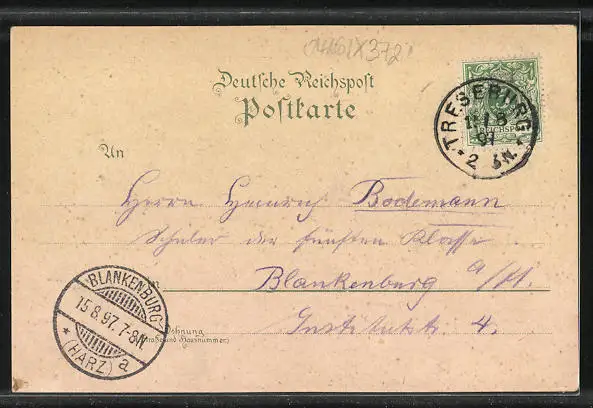 Deutsche Reichspost
Postkarte
TRESEBURG
97
2
An
Herrn Heinrich Bodemann
Schüler der fünften Klasse
in
Blankenburg a/H.
Institutstr. 4.
Wohnung
(Straße und Hausnummer)
BLANKENBURG
15.8.97.7-8N
* (HARZ) a